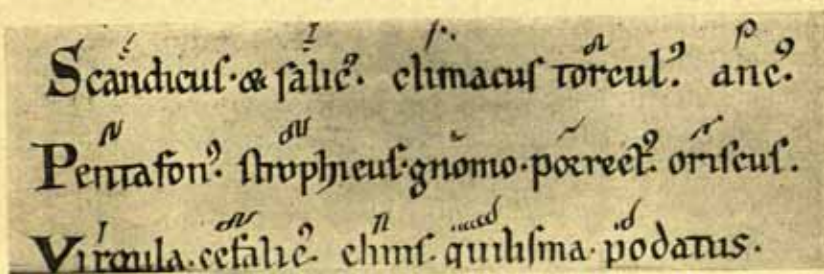 Scandicuſ·& ſalicꝰ. climacuſ torculꝰ. ancꝰ.
Pentafonꝰ. ſtrophicuſ·gnomo·poꝛrectꝰ. oriſcus.
Virgula.cefalicꝰ. cliniſ. quiliſma·podatus.